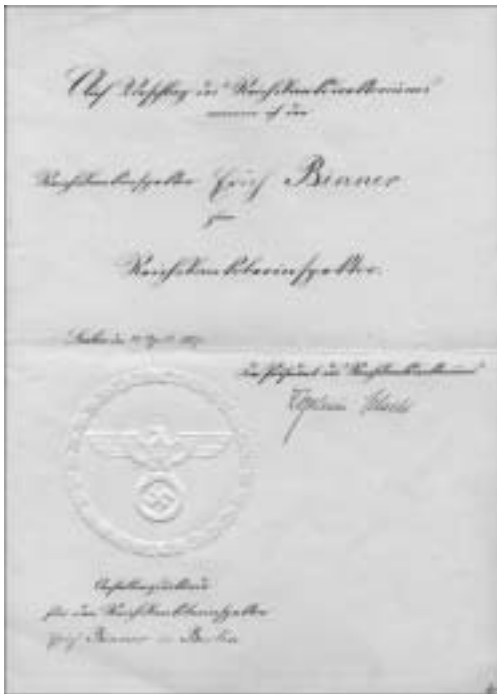 Auf Vorschlag des Reichsbankdirektoriums
ernenne ich den
Reichsbankinspektor Erich Benner
zum
Reichsbankoberinspektor.
Berlin, den
Der Präsident des Reichsbankdirektoriums
für den Reichsbankoberinspektor
Erich Benner in Berlin